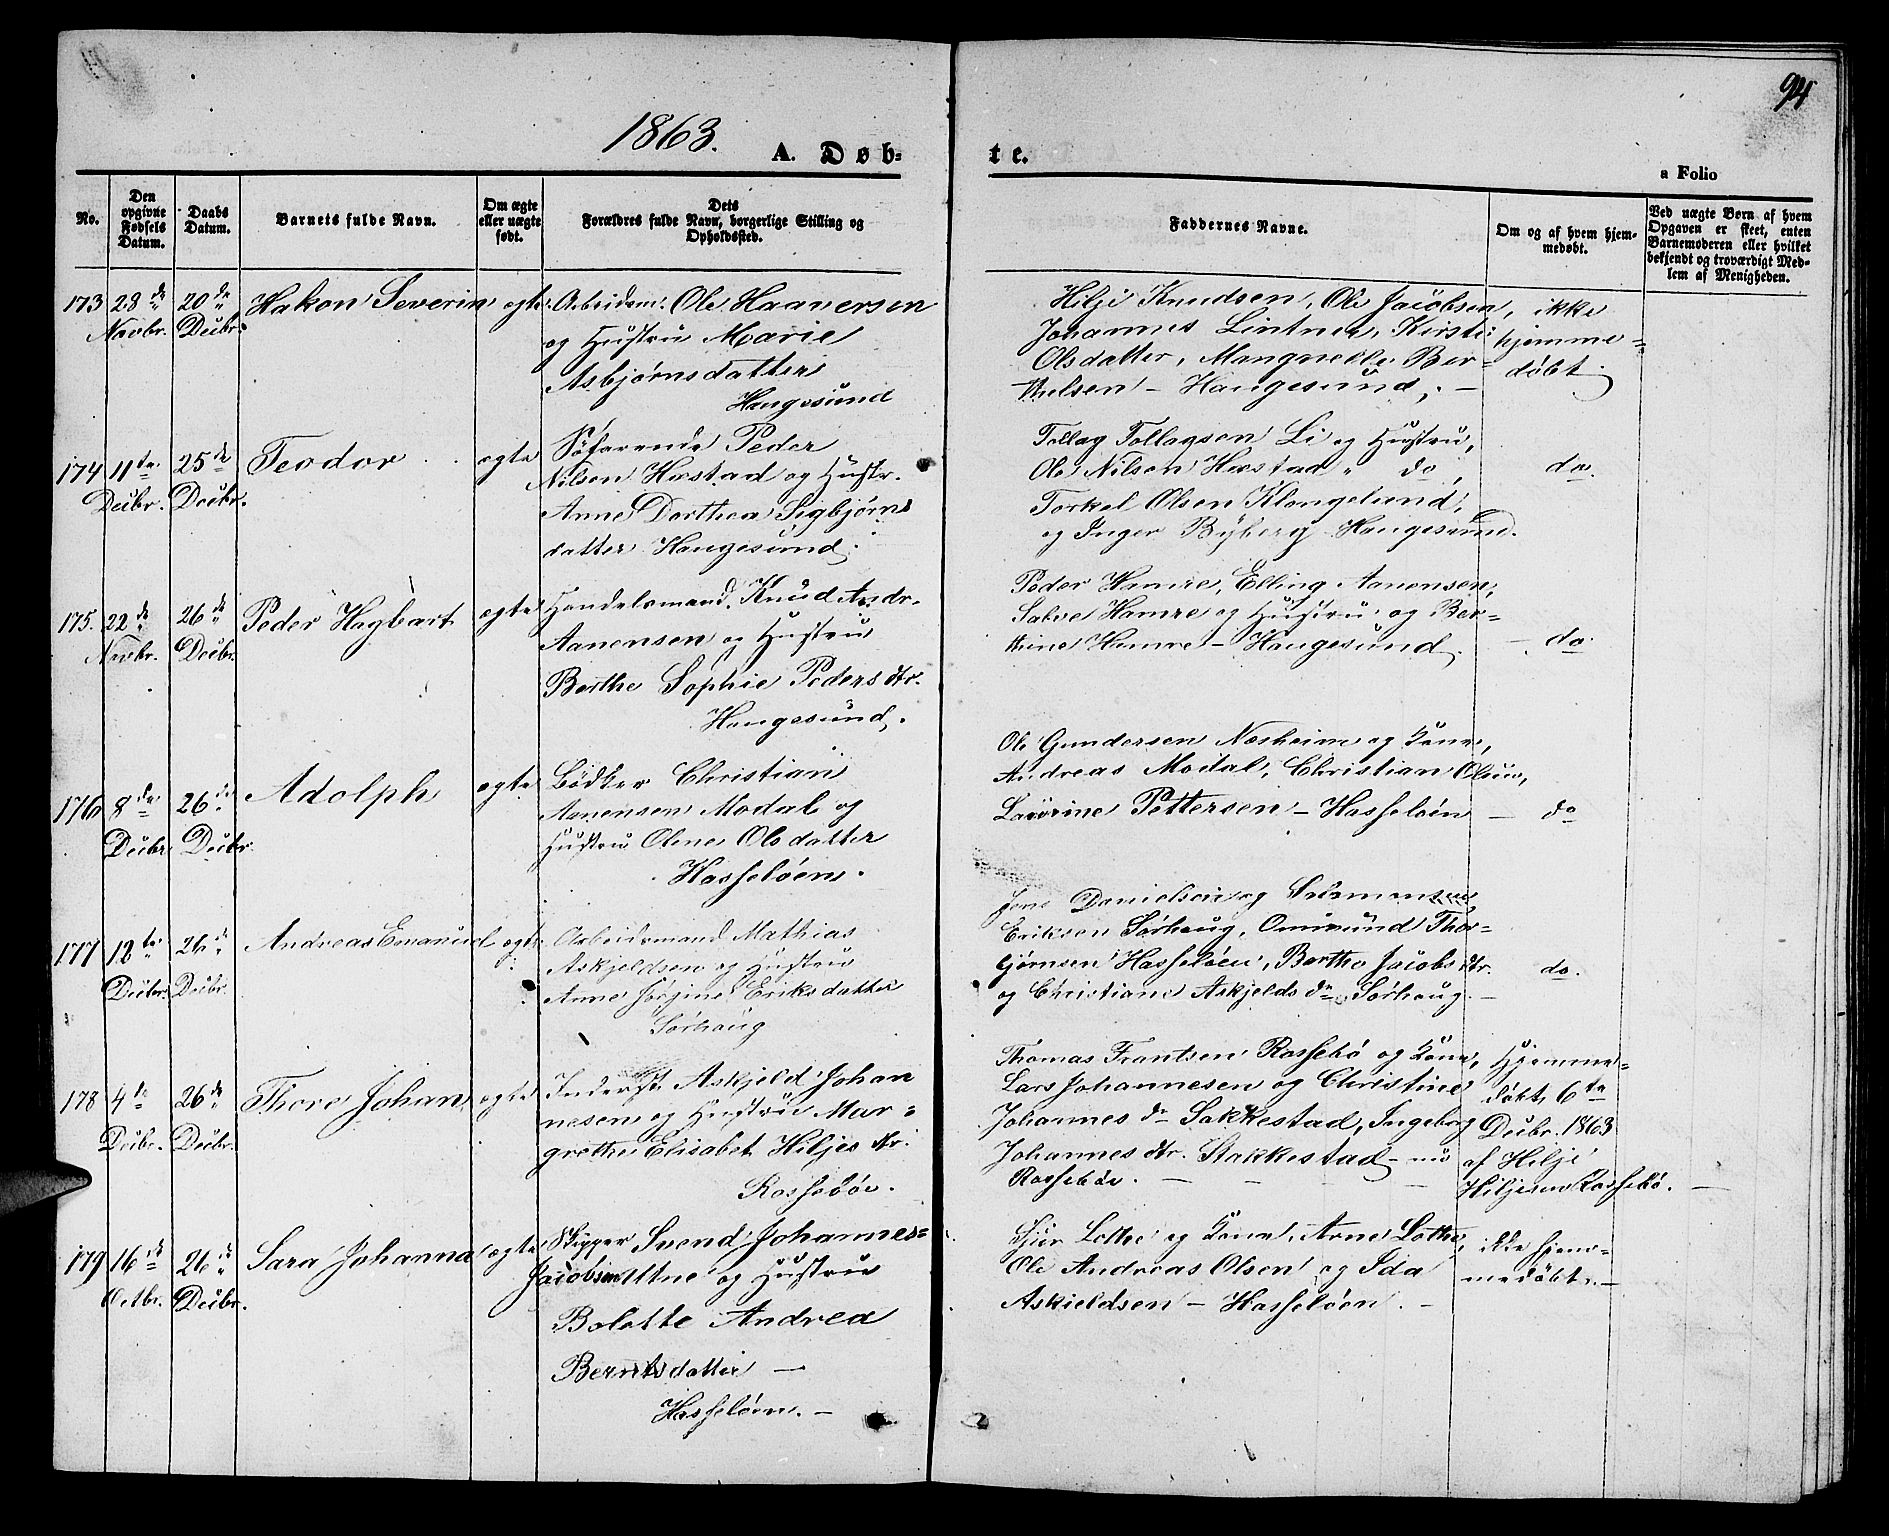 94
1863.
A. Døb-
te.
a Folio
No.
Den
opgivne
Fødsels
Datum.
Daabs
Datum.
Barnets fulde Navn.
Om ægte
eller uægte
født.
Dets
Forældres fulde Navn, borgerlige Stilling og
Opholdssted.
Faddernes Navne.
Om og af hvem hjem-
medøbt.
Ved uægte Børn af hvem
Opgaven er skeet, enten
Barnemoderen eller hvilket
bekjendt og troværdigt Med-
lem af Menigheden.
173 28de Novbr. 20de Decbr. Hakon Severin ægte
Arbeidsm. Ole Haaversen
og Hustru Marie
Asbjørnsdatter
Haugesund
Hilje Knudsen, Ole Jacobsen,
Johannes Lintner, Kirsti
Olsdatter, Mangnelle Ber-
thelsen – Haugesund, –
ikke
hjemme-
døbt.
174 11te Decbr. 25de Decbr. Teodor ægte
Søfarende Peder
Nilsen Hæstad og Hustr.
Anne Dorthea Sigbjørns
datter Haugesund.
Tollag Tollagsen Li og Hustru,
Ole Nilsen Hæstad " do,
Torkel Olsen Klongelund,
og Inger Byberg Haugesund.
do.
175. 22de Novbr. 26de Decbr. Peder Hagbart ægte
Handelsmand Knud Andr.
Aanensen og Hustru
Berthe Sophie Peders dtr.
Haugesund.
Peder Hamre, Elling Aanensen,
Hamre og Hustru og Ber-
thine Hamre – Haugesund.
– do.
176 8de Decbr. 26de Decbr. Adolph ægte
Bødker Christian
Aanensen Modal og
Hustru Olene Olsdatter
Hasseløen.
Ole Gundersen Næsheim og Kone,
Andreas Modal, Christian Olsen,
Laurine Pettersen – Hasseløen
– do
177 12te Decbr. 26de Decbr. Andreas Emanuel ægte
Arbeidsmand Mathias
Askjeldsen og Hustru
Anne Jørjine Eriksdatter
Sørhaug
Jens Danielsen og
Eriksen Sørhaug, Ommund Thor-
bjørnsen Hasseløen, Berthe Jacobs dtr.
og Christiane Askjelds dr Sørhaug. –
do.
178 4de Decbr. 26de Decbr. Thore Johan ægte
Inderst. Askjeld Johan
nesen og Hustru Mar-
grethe Elisabet Hiljes dtr.
Rossebøe.
Thomas Frantsen Rossebø og Kone,
Lars Johannesen og Christine
Johannes dr Sakkestad, Ingeborg
Johannes dtr. Stakkestad – nu
Rossebøe. –
Hjemme-
døbt 6te
Decbr. 1863
af Hilje
Hiljesen Rossebø. –
179 16de Octbr. 26de Decbr. Sara Johanna ægte
Skipper Svend Johannes-
Jacobsen Attne og Hustru
Bolette Andrea
Berntsdatter –
Hasseløen. –
Sjur Lothe og Kone, Arne Lothe,
Ole Andreas Olsen og Ida
Askieldsen – Hasseløen. –
ikke hjem-
medøbt. –